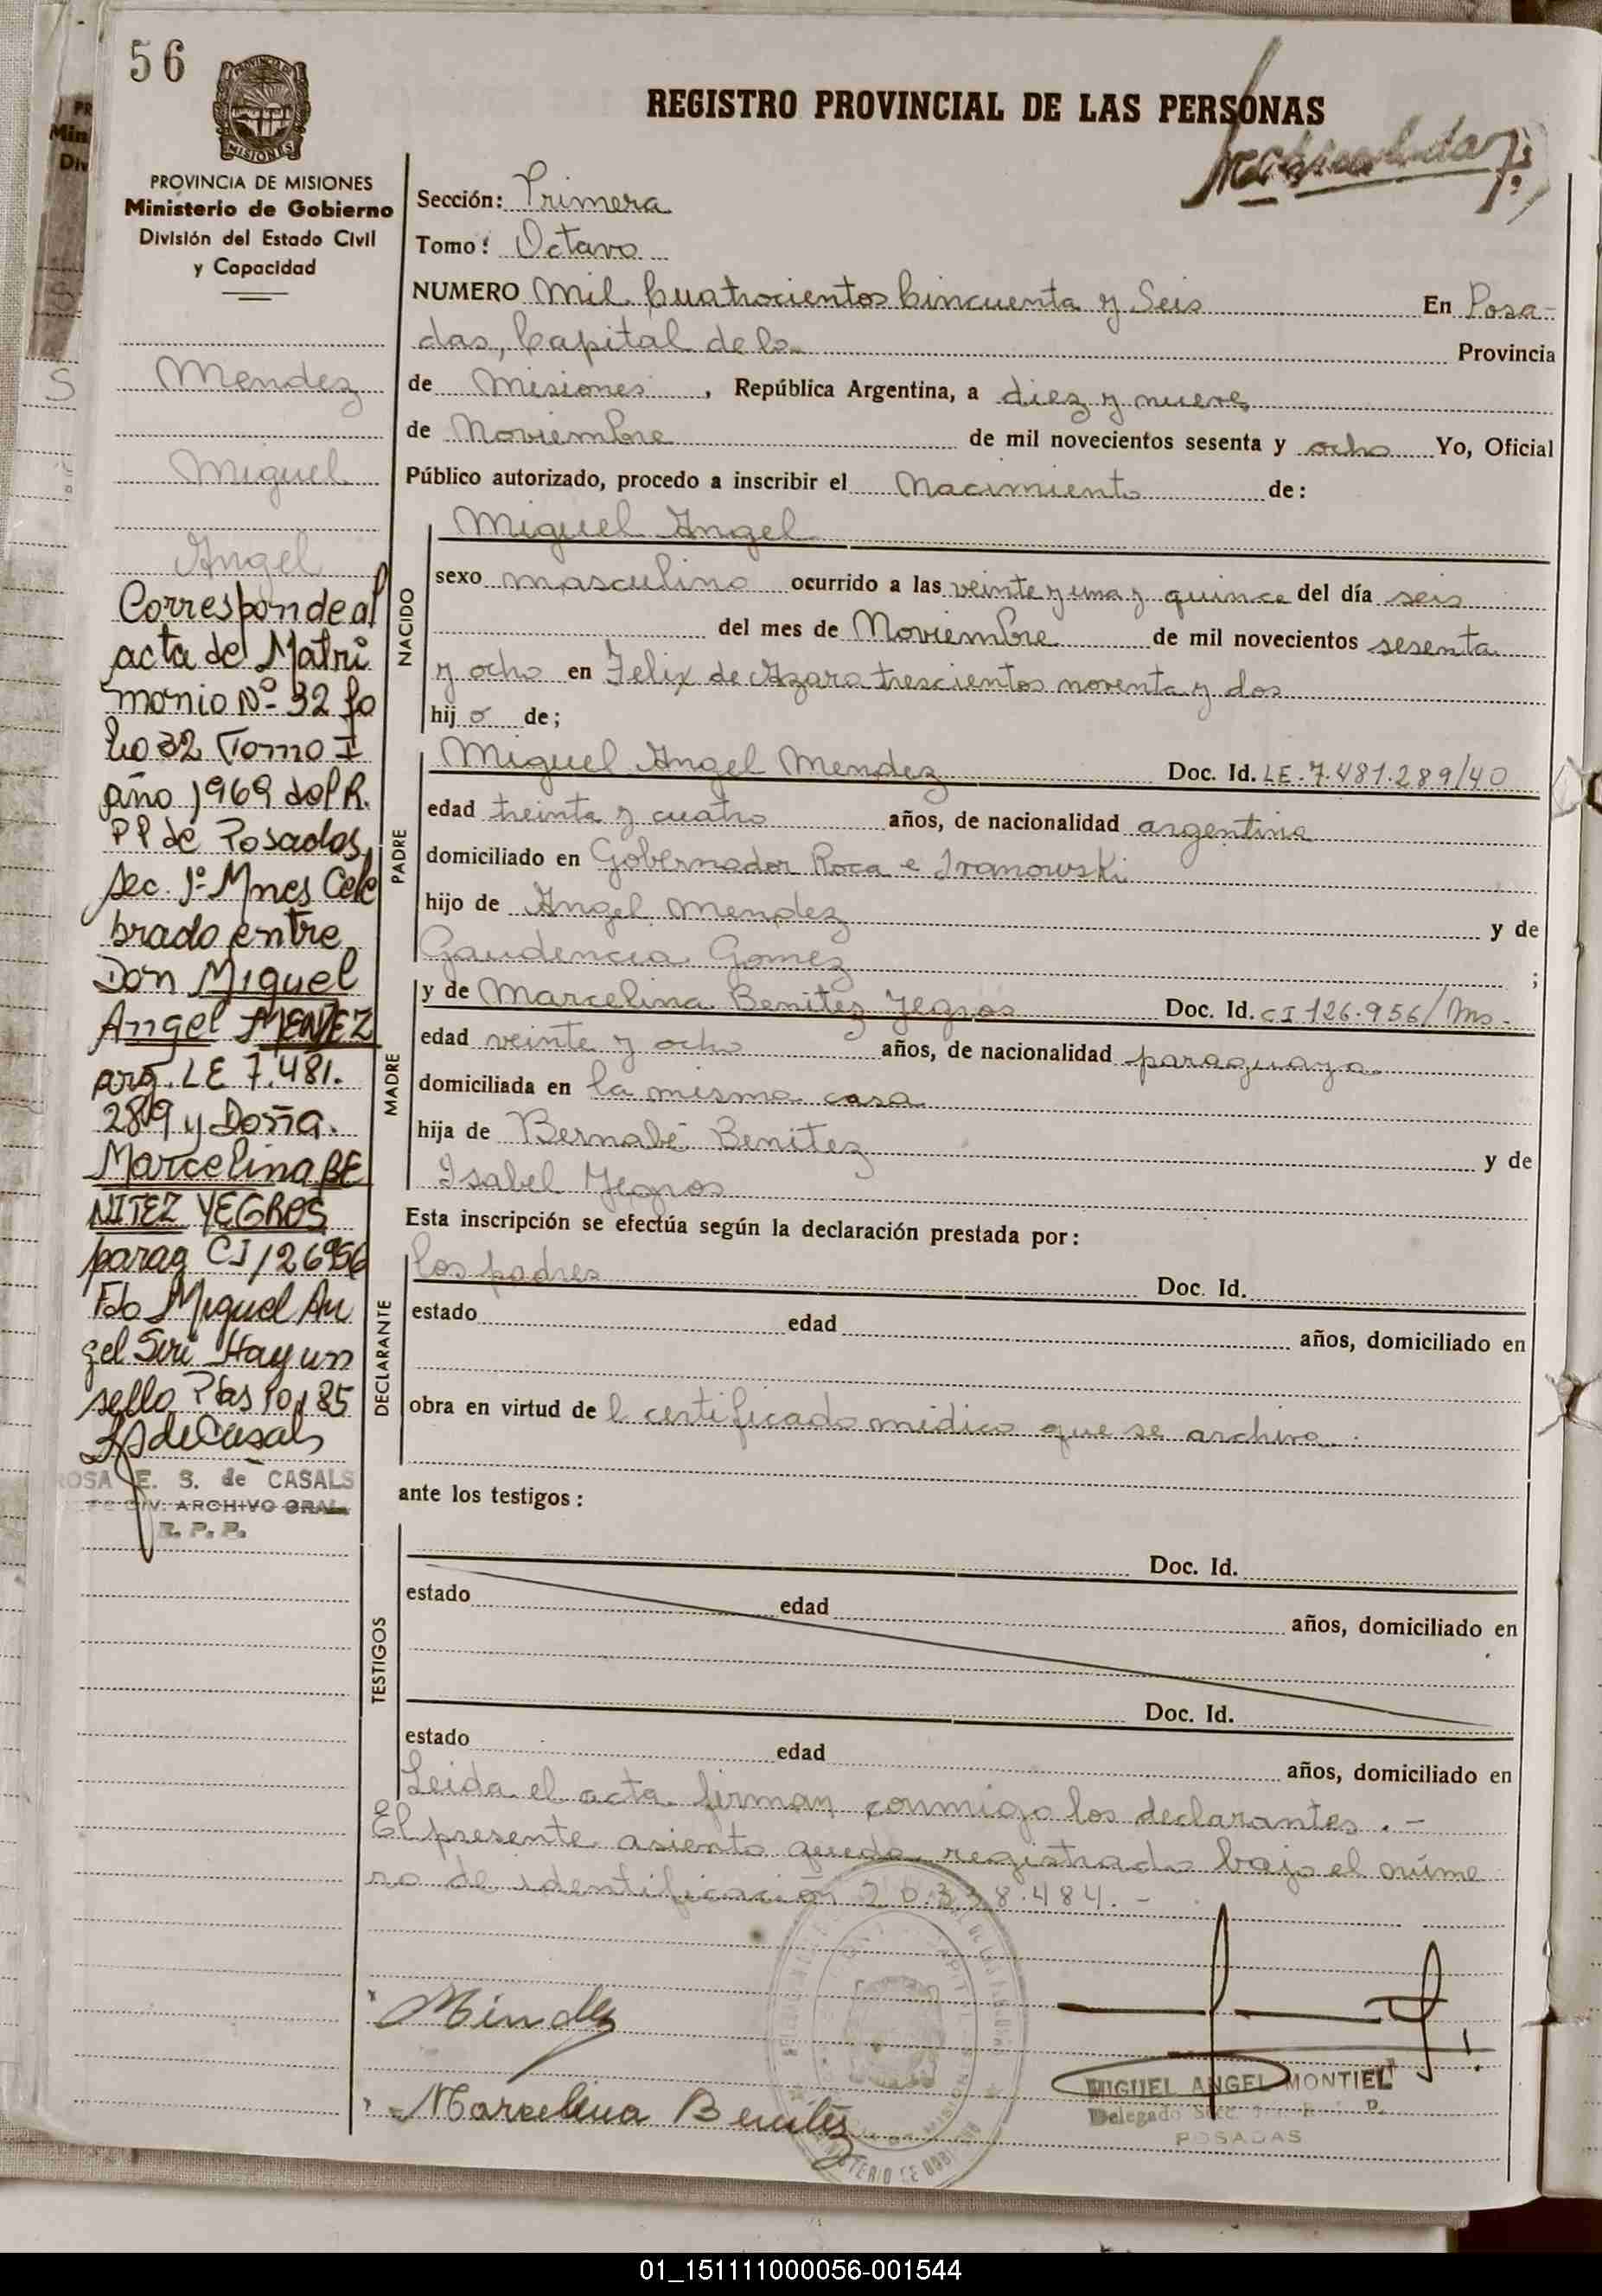 56
PROVINCIA DE MISIONES
Ministerio de Gobierno
División del Estado Civil
y Capacidad
REGISTRO PROVINCIAL DE LAS PERSONAS
Sección: Primera
Tomo: Octavo
NUMERO Mil Cuatrocientos Cincuenta y Seis En Posa-
das, Capital de la Provincia
de Misiones, República Argentina, a diez y nueve
de Noviembre de mil novecientos sesenta y ocho Yo, Oficial
Público autorizado, procedo a inscribir el Nacimiento de:
Mendez
Miguel
Angel
NACIDO
Miguel Angel
sexo masculino ocurrido a las veinte y una y quince del día seis
del mes de Noviembre de mil novecientos sesenta
y ocho en Felix de Azara trescientos noventa y dos
hijo de;
PADRE
Miguel Angel Mendez Doc. Id. LE.7.481.289/40
edad treinta y cuatro años, de nacionalidad argentina
domiciliado en Gobernador Roca e Ivanowski
hijo de Angel Mendez y de
Gaudencia Gomez ;
MADRE
y de Marcelina Benitez Yegros Doc. Id. CI 126.956/Ms-
edad veinte y ocho años, de nacionalidad paraguaya
domiciliada en la misma casa
hija de Bernabé Benitez y de
Isabel Yegros
Esta inscripción se efectúa según la declaración prestada por:
DECLARANTE
los padres Doc. Id.
estado edad años, domiciliado en
obra en virtud del certificado médico que se archiva.
ante los testigos:
TESTIGOS
Doc. Id.
estado edad años, domiciliado en
Doc. Id.
estado edad años, domiciliado en
Leida el acta firman conmigo los declarantes.-
El presente asiento queda registrado bajo el núme
ro de identificación 20.338.484.-
Corresponde al
acta de Matri
monio Nº 32 fo
lio 32 Tomo I
año 1969 del R.
PP de Posadas
Sec. 1º Mnes Cele
brado entre
Don Miguel
Angel MENDEZ
arg. LE 7.481.
289 y Doña
Marcelina BE
NITEZ YEGROS
parag CI 126956
Fdo Miguel An
gel Siri Hay un
sello Pdas 10/85
ROSA E. S. de CASALS
DIV. ARCHIVO GRAL.
R. P. P.
Mendez
Marcelina Benitez
MIGUEL ANGEL MONTIEL
Delegado
POSADAS
01_151111000056-001544